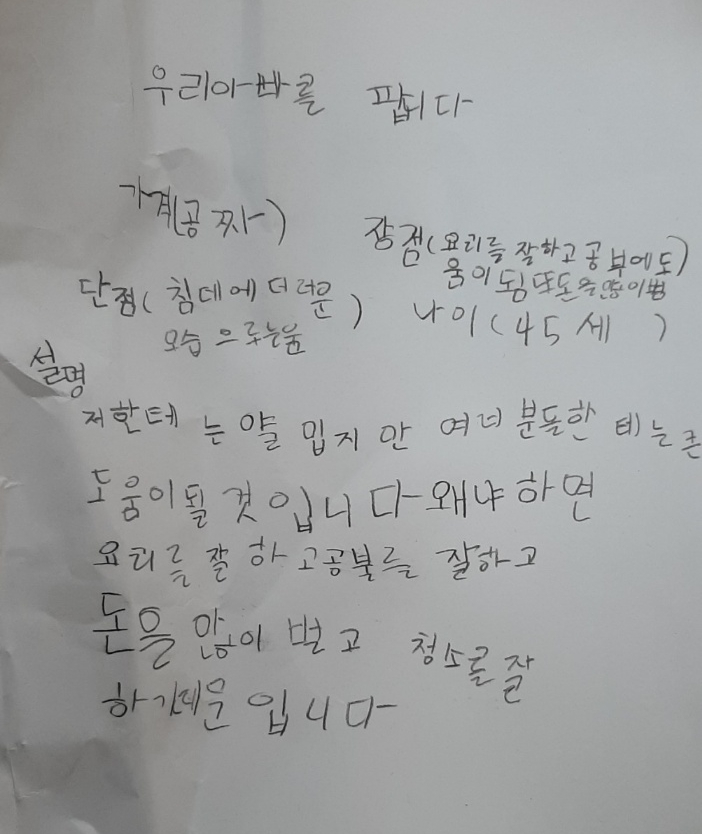 우리아빠를 팝니다
가격(공짜)
장점(요리를 잘하고 공부에도
움이 됨 또 돈을 많이 범)
단점(침대에 더러운
모습 으로 누움)
나이(45세)
설명
저한테 는 얄밉지 안 여러 분들한 테는 큰
도움이될 것 입니다 왜냐하면
요리를 잘 하 고공불를 잘하고
돈을 많이 벌고 청소를 잘
하기때문 입니다